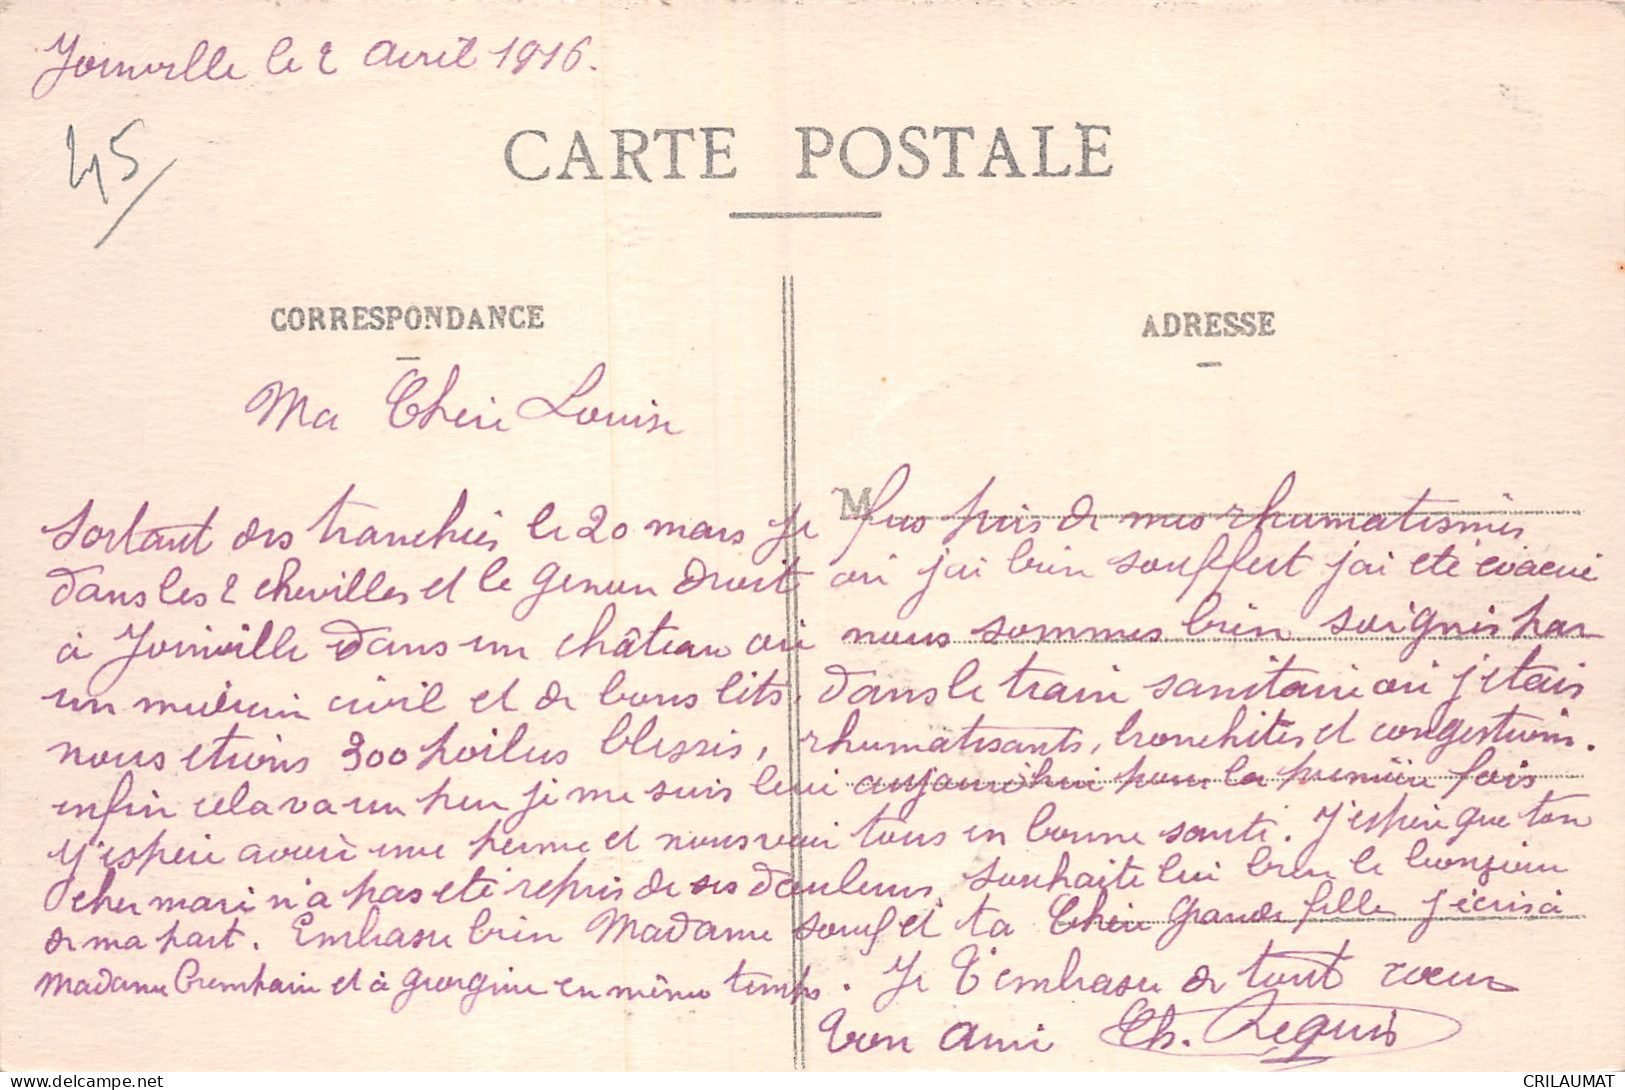 Joinville le 2 Avril 1916.
45
CARTE POSTALE
CORRESPONDANCE
ADRESSE
Ma Chère Louise
M
Sortant des tranchées le 20 mars je fus pris de mes rhumatismes
dans les 2 chevilles et le genou droit où j'ai bien souffert j'ai été évacué
à Joinville dans un château où nous sommes bien soignés par
un médecin civil et de bons lits, dans le train sanitaire où j'étais
nous étions 300 poilus blessés, rhumatisants, bronchites et congestions.
enfin cela va un peu je me suis levé aujourd'hui pour la première fois
J'espère avoir une perme et nous voir tous en bonne santé. J'espère que ton
cher mari n'a pas été repris de ses douleurs, souhaite lui bien le bonjour
de ma part. Embrasse bien Madame et ta Chère grande fille j'écris à
Madame et à Georgine en même temps. Je t'embrasse de tout cœur
Ton ami Ch. Requis
CRILAUMAT